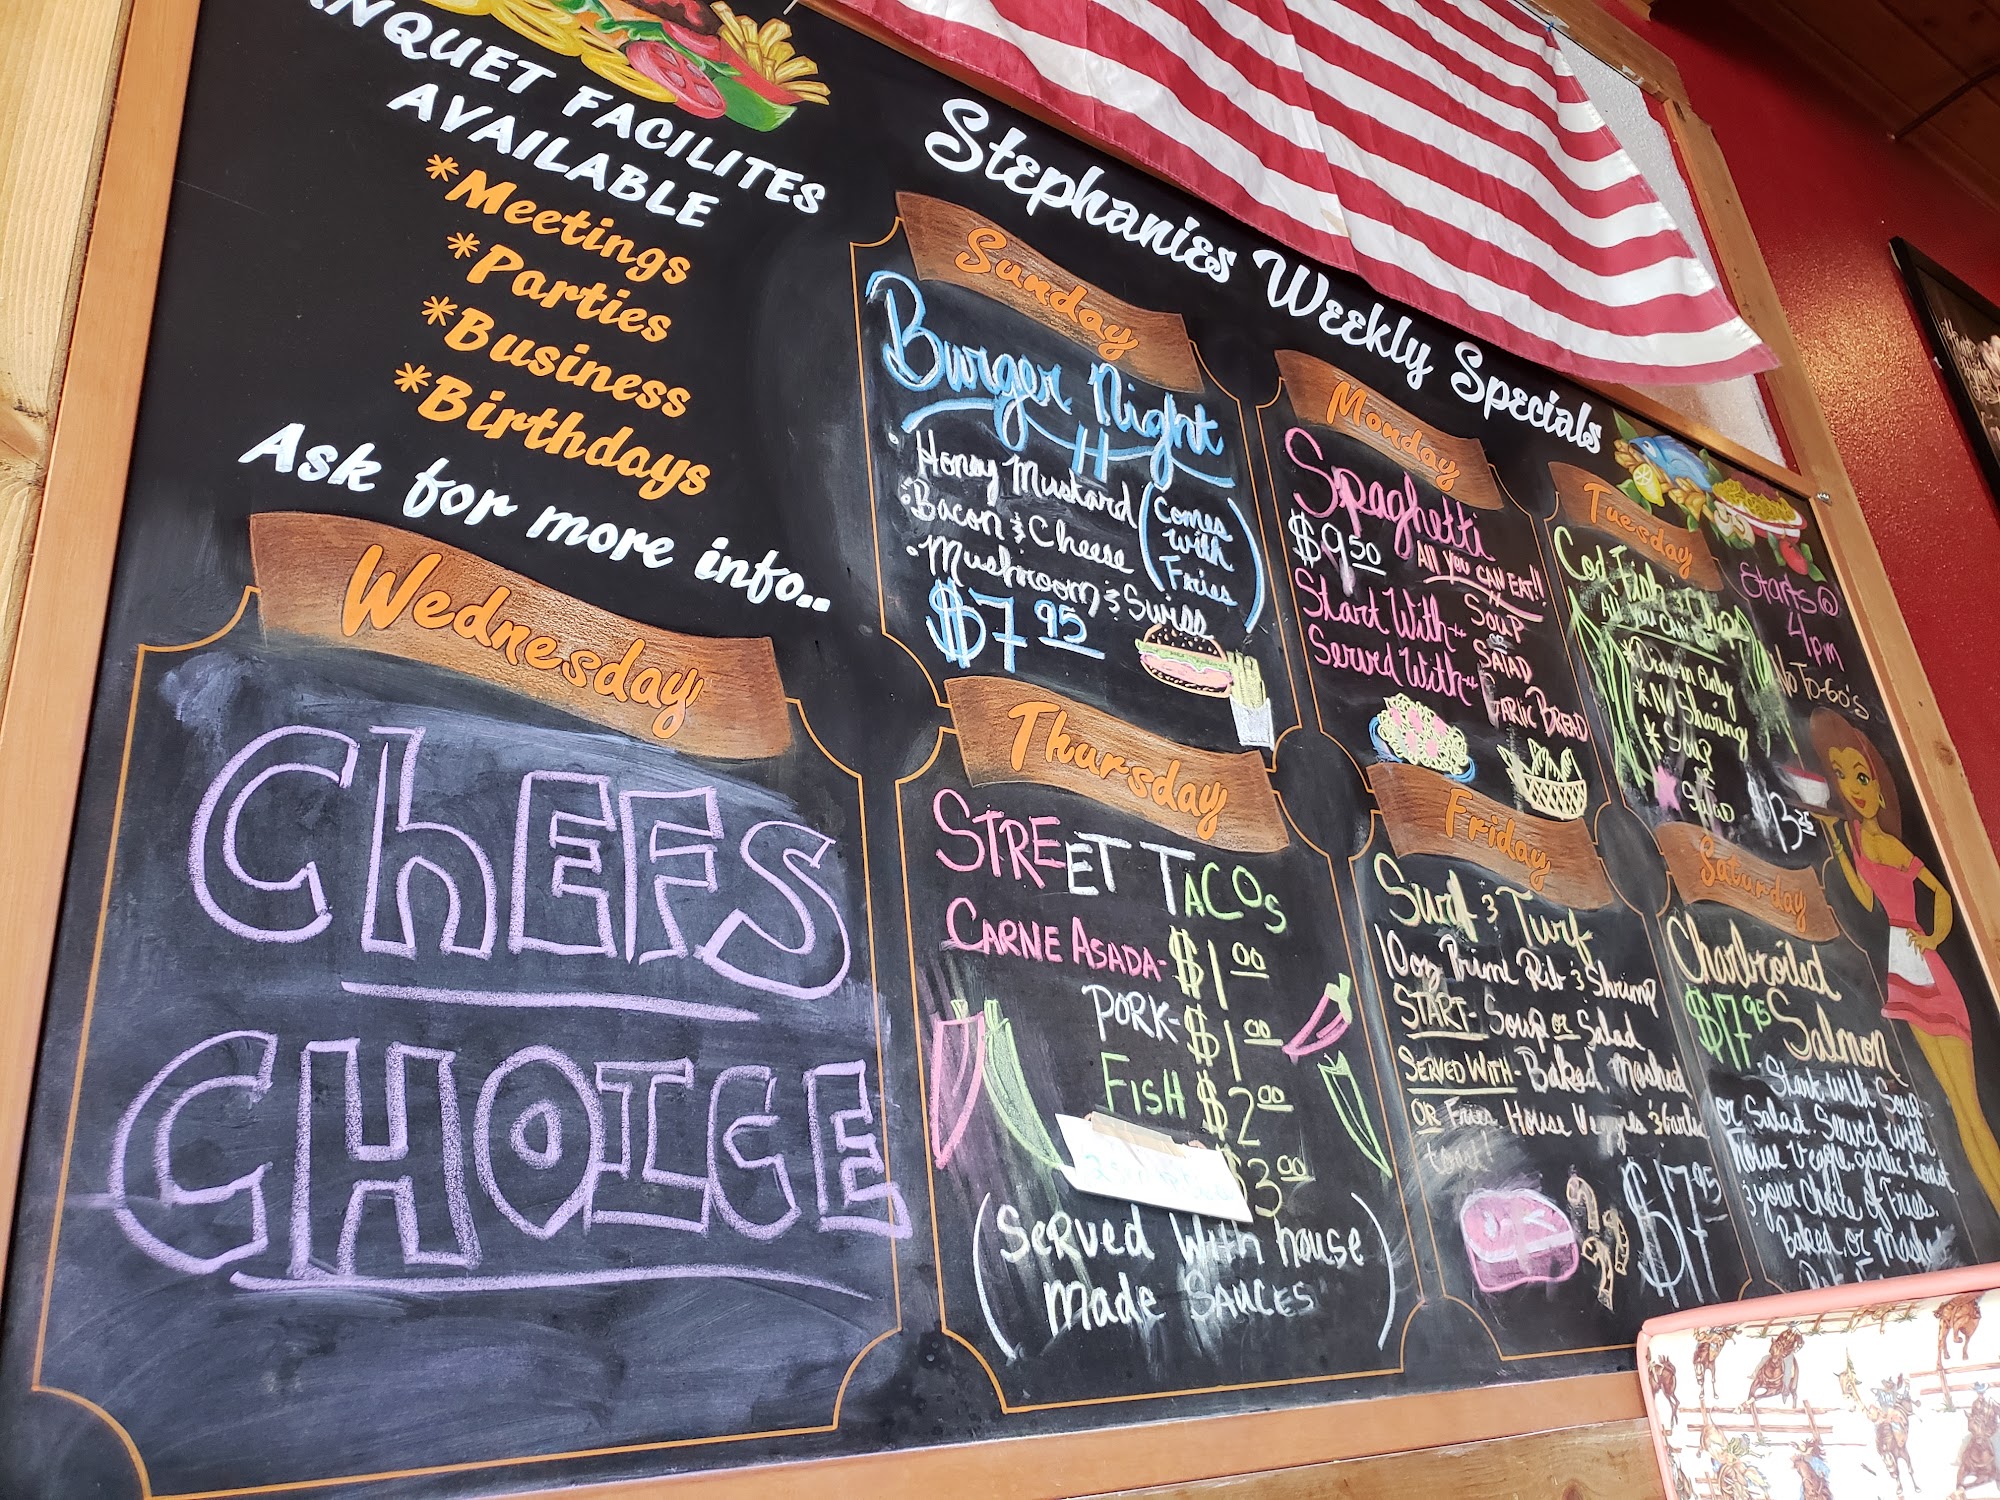 NQUET FACILITES
AVAILABLE
*Meetings
*Parties
*Business
*Birthdays
Ask for more info..
Stephanies Weekly Specials
Sunday
Burger Night
• Honey Mustard
• Bacon & Cheese
• Mushroom & Swiss
(Comes
with
Fries)
$7.95
Monday
Spaghetti
$9.50 All YOU CAN EAT!!
Start With→ SOUP
OR
SALAD
Served With→ GARLIC BREAD
Tuesday
Cod Fish & Chips
All YOU CAN EAT
*Dine-in Only
*No Sharing
*Soup
or
Salad
$13.25
Starts @
4pm
No To-Go's
Wednesday
CHEFS
CHOICE
Thursday
STREET TACOS
CARNE ASADA- $1.00
PORK- $1.00
FISH $2.00
$3.00
(Served With house
made SAUCES)
Friday
Surf & Turf
10oz Prime Rib & Shrimp
START- Soup or Salad
SERVED WITH- Baked, Mashed
OR Fries House Veggies & Garlic
toast!
$17.95
Saturday
Charbroiled
$17.95 Salmon
Start with Soup
or Salad. Served with
House Veggie, garlic toast
& your Choice of Fries.
Baked or Mashed